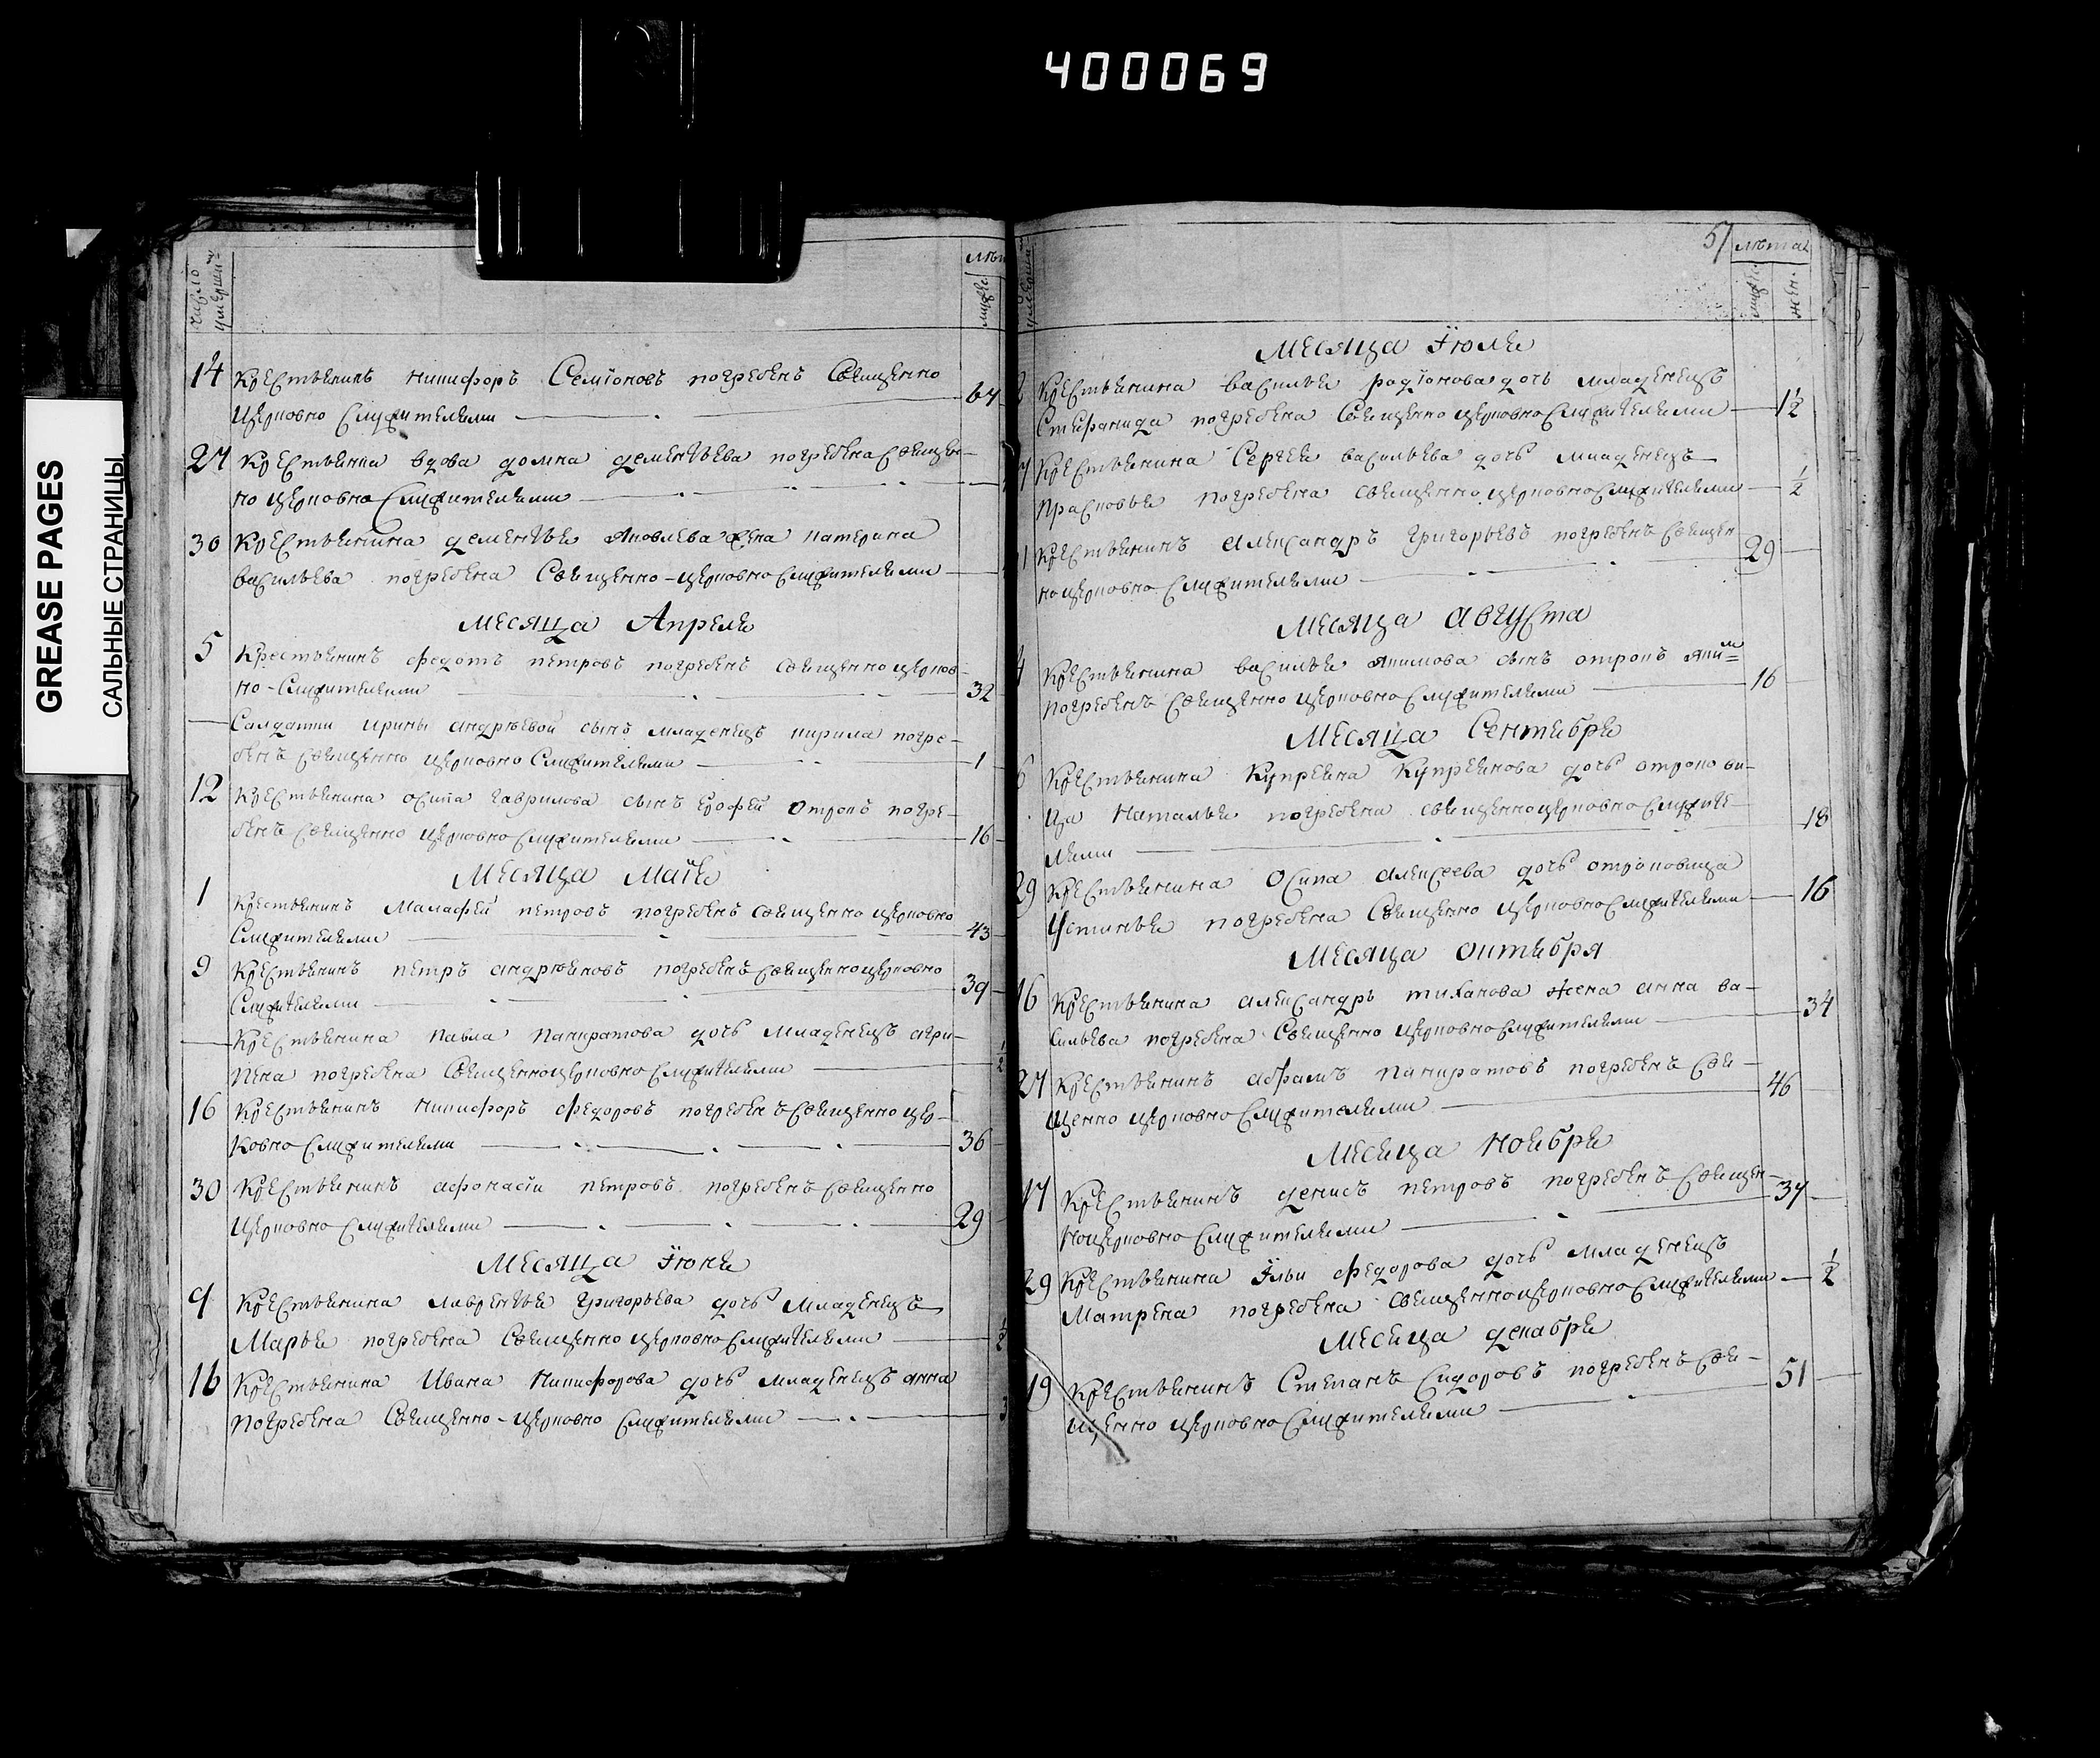 400069
GREASE PAGES
САЛЬНЫЕ СТРАНИЦЫ
число умерши
лѣт
муже.
14 Крестьянинъ никифоръ Семіоновъ погребенъ Священно 64
церковно Служителями
27 Крестьянка вдова домна дементьева погребена Священ-
но церковно Служителями
30 Крестьянина дементья яковлева жена катерина
васильева погребена Священно-церковно Служителями
Месяца Апреля
5 Крестьянинъ федотъ петровъ погребенъ священно церков-
но-Служителями 32
Салдатки ирины андрѣевой сынъ младенецъ кирила погре-
бенъ священно церковно Служителями 1
12 Крестьянина осипа гаврилова сынъ ерофей отрокъ погре-
бенъ Священно церковно Служителями 16
Месяца Маія
1 Крестьянинъ Малафей петровъ погребенъ священно церковно
Служителями 43
9 Крестьянинъ петръ андрѣяновъ погребенъ священноцерковно
Служителями 39
Крестьянина павла панкратова дочь младенецъ агри-
пена погребена Священноцерковно Служителями ½
16 Крестьянинъ никифоръ федоровъ погребенъ Священно цер-
ковно Служителями 36
30 Крестьянинъ афонасіи петровъ погребенъ Священно
церковно Служителями 29
Месяца Їюня
9 Крестьянина лаврентья григорьева дочь младенецъ
Марья погребена Священно церковно Служителями ½
16 Крестьянина Ивана Никифорова дочь младенецъ анна
погребена Священно-церковно Служителями 3
57 лѣта
муже. жен.
Месяца Їюля
2 Крестьянина василья радіонова дочь младенецъ
Стефанида погребена Священно церковно Служителями 1½
7 Крестьянина Сергея васильева дочь младенецъ
прасковья погребена священно церковно Служителями ½
Крестьянинъ александръ григорьевъ погребенъ Священ 29
но церковно Служителями
Месяца августа
4 Крестьянина василья якимова сынъ отрокъ яким
погребенъ Священно церковно Служителями 16
Месяца Сентября
6 Крестьянина Купреяна Купреянова дочь отрокови-
ца наталья погребена священноцерковно Служите- 18
лями
29 Крестьянина Осипа алексеева дочь отроковица
Устинья погребена Священно церковно Служителями 16
Месяца октября
16 Крестьянина александръ тиханова жена анна ва- 34
сильева погребена Священно церковно Служителями
27 Крестьянинъ абрамъ панкратовъ погребенъ Свя- 46
щенно церковно Служителями
Месяца ноября
17 Крестьянинъ денисъ петровъ погребенъ Священ- 37
ноцерковно Служителями
29 Крестьянина Їльи федорова дочь младенецъ ½
Матрена погребена священноцерковно Служителями
Месяца декабря
19 Крестьянинъ Степанъ Сидоровъ погребенъ Свя- 51
щенно церковно Служителями